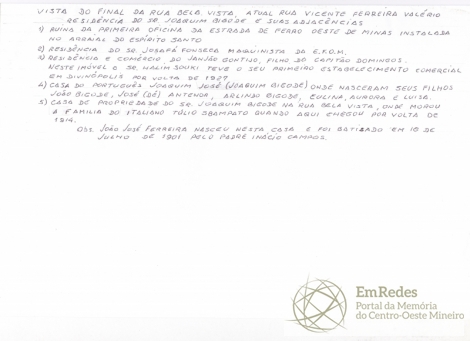 VISTA DO FINAL DA RUA BELA VISTA, ATUAL RUA VICENTE FERREIRA VALÉRIO
RESIDÊNCIA DO SR. JOAQUIM BIGODE E SUAS ADJACÊNCIAS
1) RUINA DA PRIMEIRA OFICINA DA ESTRADA DE FERRO OESTE DE MINAS INSTALADA
NO ARRAIAL DO ESPÍRITO SANTO
2) RESIDÊNCIA DO SR. JOSAFÁ FONSECA MAQUINISTA DA E.F.O.M.
3) RESIDÊNCIA E COMÉRCIO DO JANJÃO GONTIJO, FILHO DE CAPITÃO DOMINGOS.
NESTE IMÓVEL O SR. HALIM SOUKI TEVE O SEU PRIMEIRO ESTABELECIMENTO COMERCIAL
EM DIVINÓPOLIS POR VOLTA DE 1927
4) CASA DO PORTUGUÊS JOAQUIM JOSÉ (JOAQUIM BIGODE) ONDE NASCERAM SEUS FILHOS
JOÃO BIGODE, JOSÉ (DÉ) ANTENOR, ARLINDO BIGODE, EULINA, AURORA E LUIZA.
5) CASA DE PROPRIEDADE DO SR. JOAQUIM BIGODE NA RUA BELA VISTA, ONDE MOROU
A FAMILIA DO ITALIANO TÚLIO SBAMPATO QUANDO AQUI CHEGOU POR VOLTA DE
1914.
OBS. JOÃO JOSÉ FERREIRA NASCEU NESTA CASA E FOI BATIZADO EM 18 DE
JULHO DE 1901 PELO PADRE INÁCIO CAMPOS.
EmRedes
Portal da Memória
do Centro-Oeste Mineiro